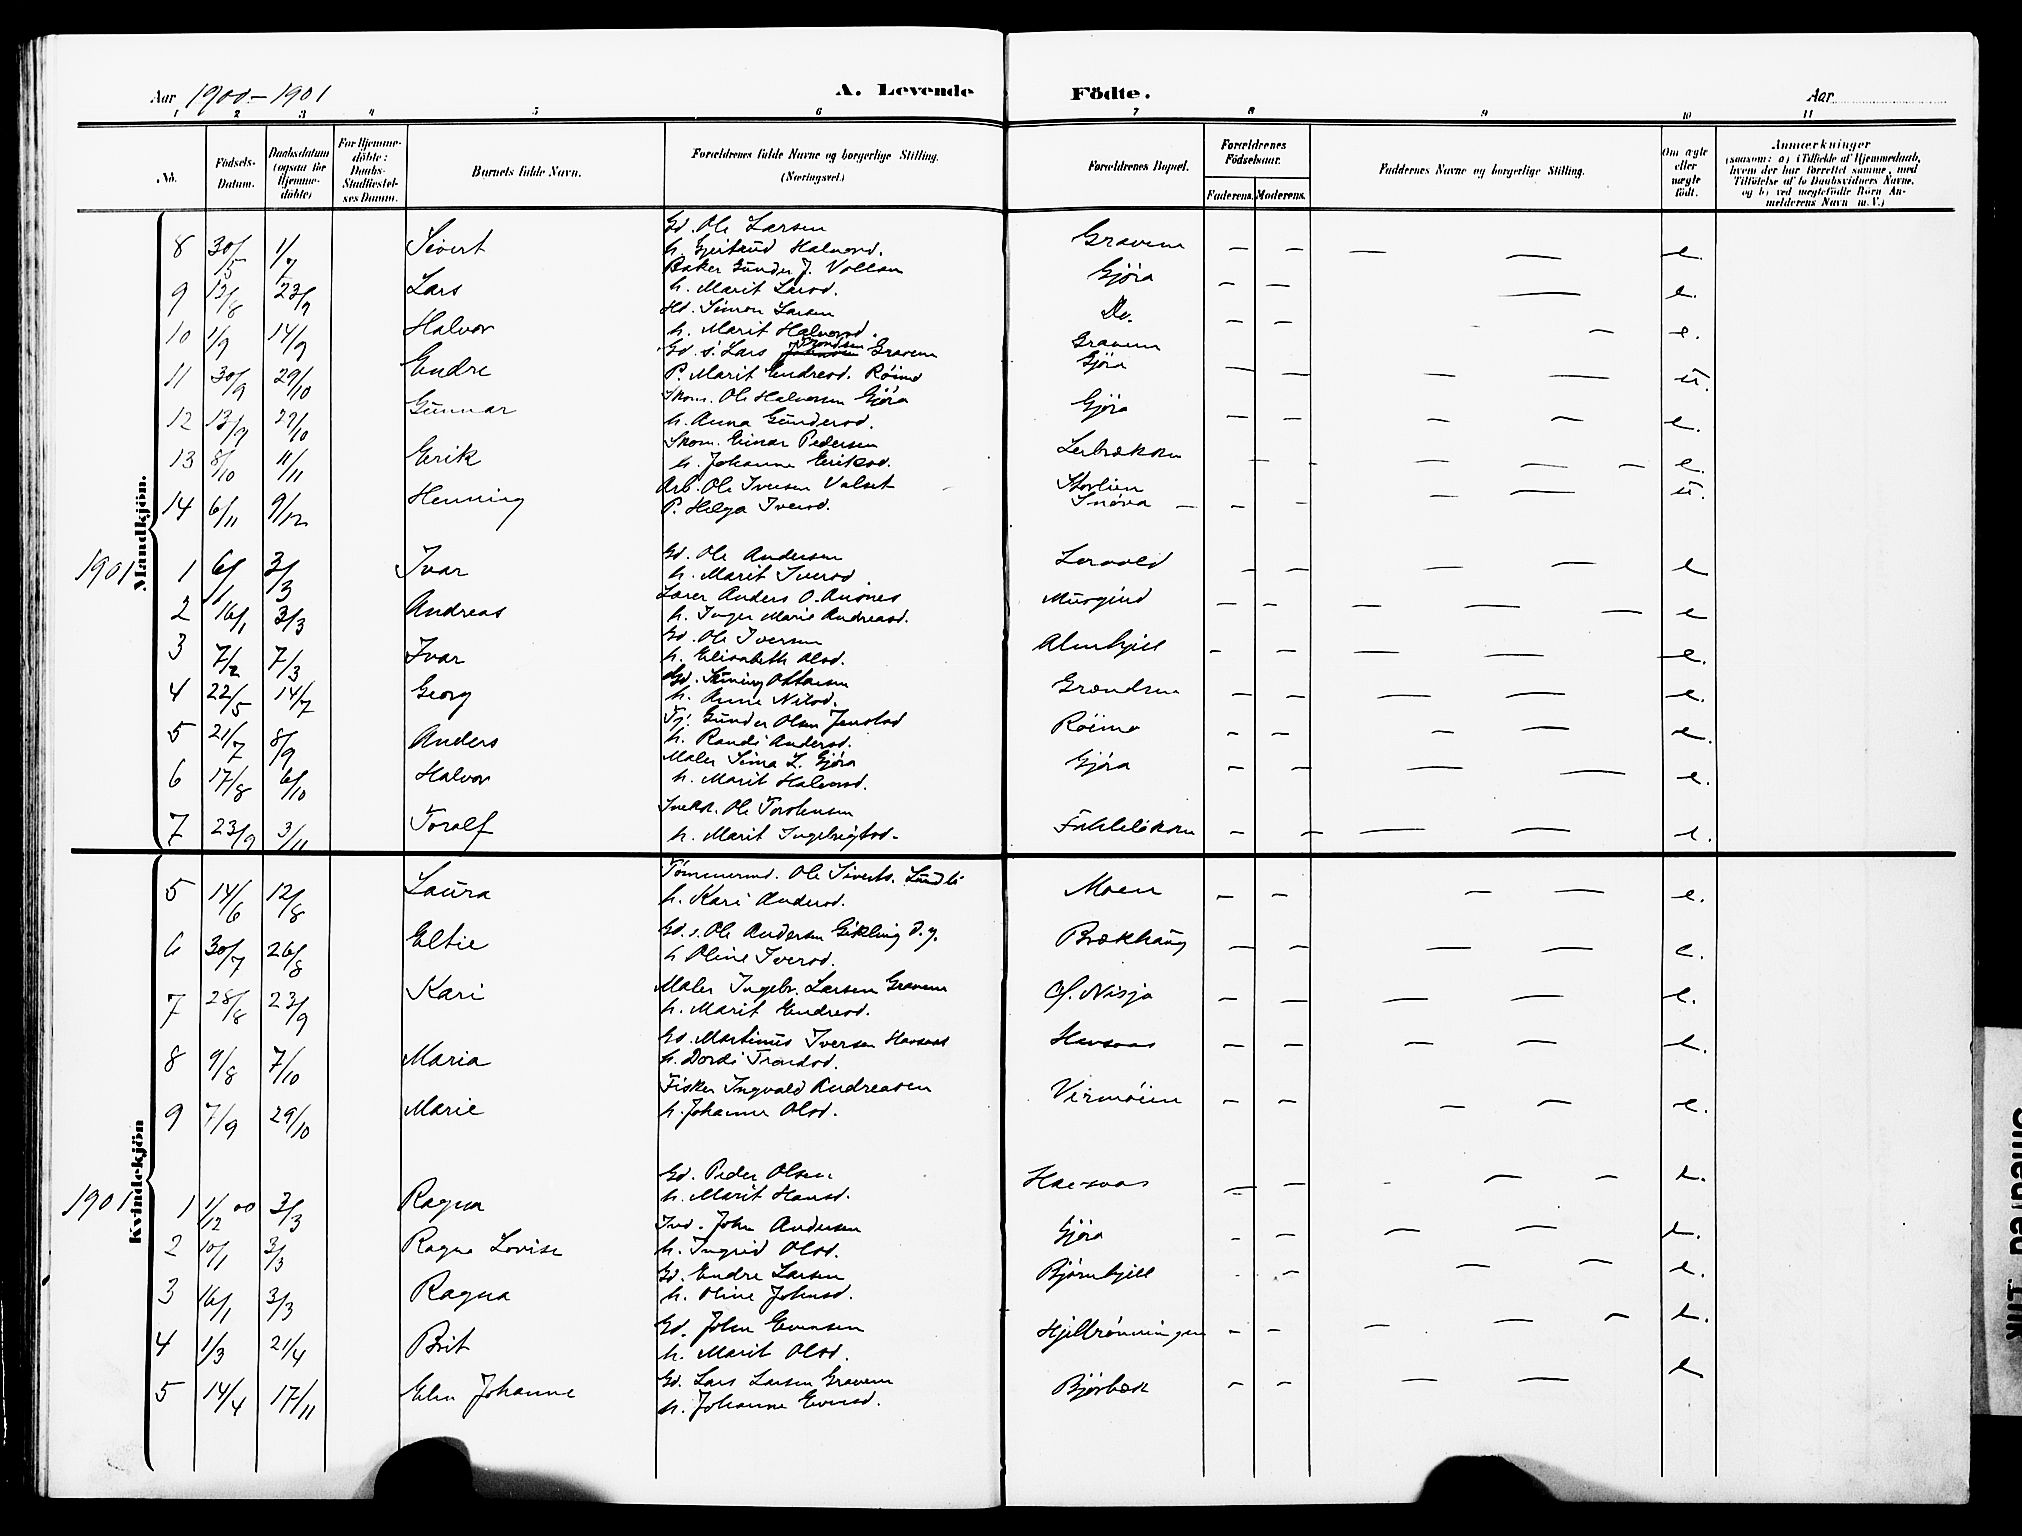 Aar 1900-1901 A. Levende Födte. Aar
1 2 3 4 5 6 7 8 9 10 11
No. Födsels-Datum. Daabsdatum (ogsaa for Hjemme-döbte) For Hjemme-döbte: Daabs-Stadfæstel-ses Datum. Barnets fulde Navn. Forældrenes fulde Navne og borgerlige Stilling. (Næringsvei.) Forældrenes Bopæl. Forældrenes Födselsaar. Faderens. Moderens. Faddernes Navne og borgerlige Stilling. Om ægte eller uægte födt. Anmærkninger (saasom: a) i Tilfælde af Hjemmedaab, hvem der har forrettet samme, med Tilföielse af to Daabsvidners Navne, og b) ved uægtefödte Börn An-melderens Navn m. V.)
Mandkjön.
Gd. Ole Larsen
8 30/5 1/7 Sivert h. Gjertrud Halvord. Gravem — — — — e.
Baker Gunder J. Vollan
9 12/8 23/9 Lars h. Marit Larsd. Gjöra — — — e.
Hd. Simon Larsen
10 1/9 14/9 Halvor h. Marit Halvorsd. Do. — — — e.
Gd. s. Lars Johnsen Trondsen Gravem Gravem
11 30/9 29/10 Endre P. Marit Endresd. Röimo Gjöra — — — — u.
Skom. Ole Halvorsen Gjöra
12 13/9 29/10 Gunnar h. Anna Gundersd. Gjöra — — — — e.
Skom. Einar Pedersen
13 8/10 11/11 Erik h. Johanne Eriksd. Lerbrækken — — — — — e.
Arb. Ole Iversen Valset Storlien
14 6/11 9/12 Henning P. Helga Iversd. Snöva — — — — — u.
1901
Gd. Ole Andersen
1 6/1 3/3 Ivar h. Marit Iversd. Lervold — — — — e
Lærer Anders O. Ansnes
2 16/1 3/3 Andreas h. Inger Marie Andreasd. Musgjerd — — — — — e
Gd. Ole Iversen
3 7/2 7/3 Ivar h. Elisabeth Olsd. Almskjell — — — — e.
Gd. Ottarsen
4 22/5 14/7 Georg h. Anne Nilsd. Grændsen — — — — e.
Tj. Gunder Olsen Jenstad
5 21/7 8/9 Anders h. Randi Andersd. Röimo — — — — e.
Maler Simon L. Gjöra
6 17/8 6/10 Halvor h. Marit Halvorsd. Gjöra — — — — e.
Ole Torstensen
7 23/9 3/11 Toralf h. Marit Ingebrigtsd. — — — — e.
Kvindekjön
Tömmermd. Ole Siverts. Lundli
5 14/6 12/8 Laura h. Kari Andersd. Moen — — — — e.
Gd. s. Ole Andersen Gikling d. y.
6 30/7 26/8 Eltie h Oline Iversd. Brækhaug — — — — e.
Maler Ingebr. Larsen Gravem
7 28/8 23/9 Kari h. Marit Endresd. Nisja — — — — e.
Gd. Martinus Iversen Havsaas
8 9/8 7/10 Maria h. Dordi Trondsd. Havsaas — — — — e.
Fisker Ingvald Andreasen
9 7/9 29/10 Marie h. Johanne Olsd. Virmoien — — — — e.
1901
Gd. Peder Olsen
1 1/12 00 3/3 Ragna h. Marit Hansd. Havsaas — — — — e.
Ind. John Andersen
2 10/1 3/3 Ragna Lovise h. Ingrid Olsd. Gjöra — — — — e.
Gd. Endre Larsen
3 16/1 3/3 Ragna h. Oline Johnsd. Björnhjell — — — e.
Gd. John Evensen
4 1/3 21/4 Brit h. Marit Olsd. Hjellrönningen — — — — — e.
Gd. Lars Larsen Gravem
5 14/4 17/11 Elen Johanne h. Johanne Evensd. Björbæk — — — — e